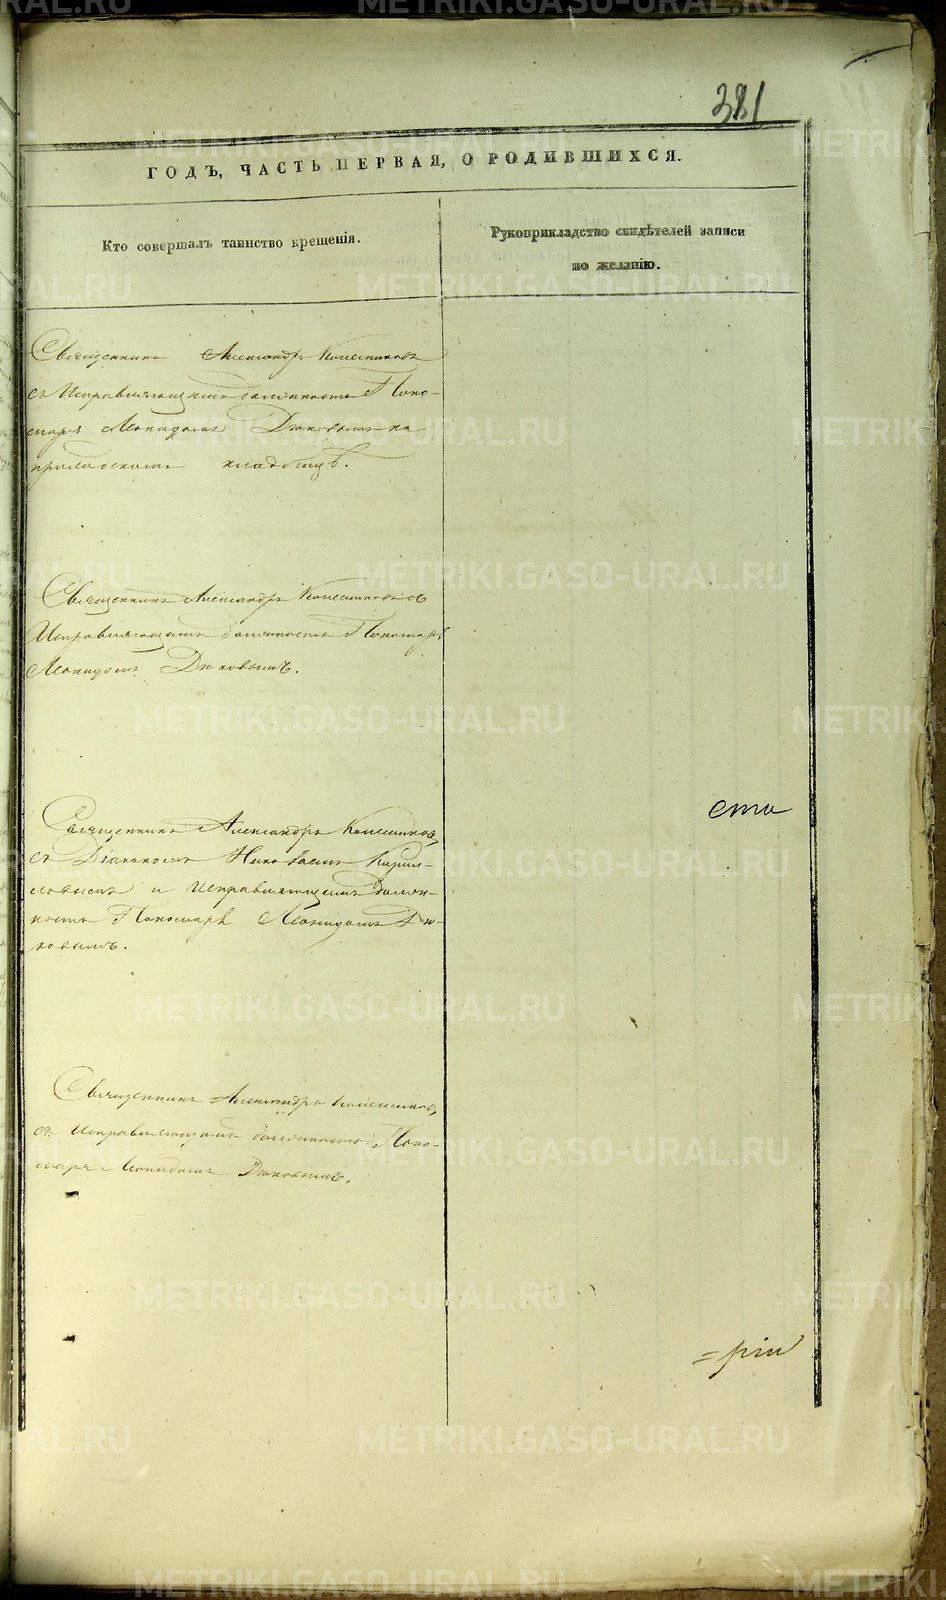 381
ГОДЪ, ЧАСТЬ ПЕРВАЯ, О РОДИВШИХСЯ.
Кто совершалъ таинство крещенія.
Рукоприкладство свидѣтелей записи
по желанію.
Священникъ Александръ Колесниковъ
съ Исправляющимъ должность Поно-
маря Леонидомъ Дюковымъ на
кладбищѣ.
Священникъ Александръ Колесниковъ съ
Исправляющимъ должность Пономаря
Леонидомъ Дюковымъ.
Священникъ Александръ Колесниковъ,
съ Діакономъ Николаемъ Кирил-
ловымъ и Исправляющимъ долж-
ность Пономаря Леонидомъ Дю-
ковымъ.
Священникъ Александръ Колесниковъ,
съ Исправляющимъ должность Поно-
маря Леонидомъ Дюковымъ.
=рій
METRIKI.GASO-URAL.RU